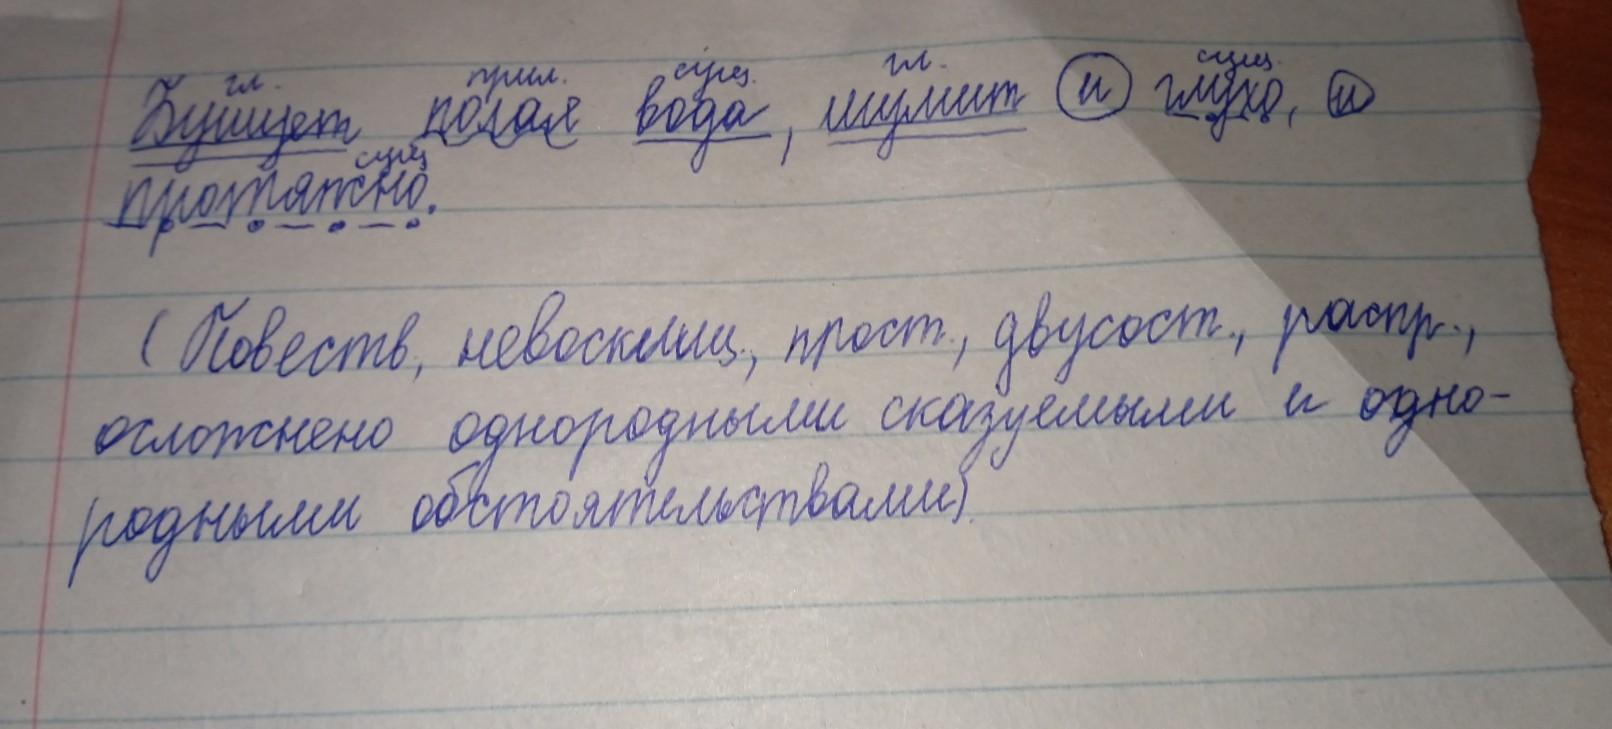 гл. прил. сущ. гл. сущ.
Бушует полая вода, шумит и глухо, и
сущ
протяжно.
(Повеств, невосклиц., прост., двусост., распр.,
осложнено однородными сказуемыми и одно-
родными обстоятельствами)